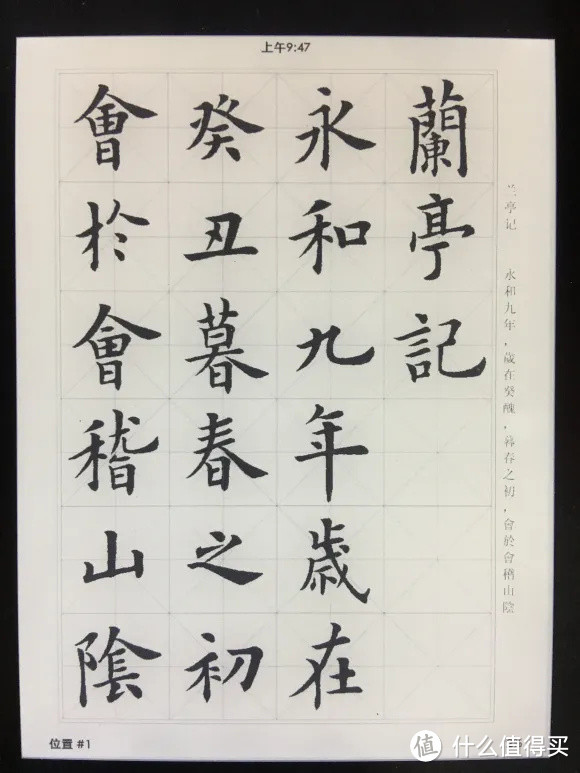 上午9:47
兰亭记 永和九年，歲在癸醜，暮春之初，會於會稽山陰
蘭亭記
永和九年歲在
癸丑暮春之初
會於會稽山陰
位置 #1
值 什么值得买